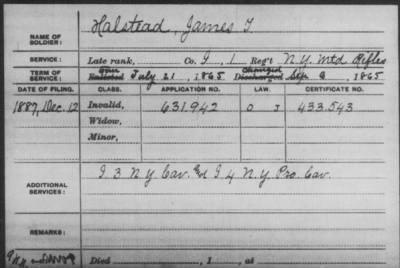 NAME OF SOLDIER: Halstead, James T
SERVICE: Late rank, Co. I, 1 Reg't N.Y. Mtd Rifles
TERM OF SERVICE: Enlisted July 21, 1865 Discharged Sep 6, 1865
DATE OF FILING. CLASS. APPLICATION NO. LAW. CERTIFICATE NO.
1887, Dec. 12 Invalid, 631.942 O J 433.543
Widow,
Minor,
ADDITIONAL SERVICES: I 3 N Y Cav. & I 4 N.Y. Pro. Cav.
REMARKS:
Died , 1 , at